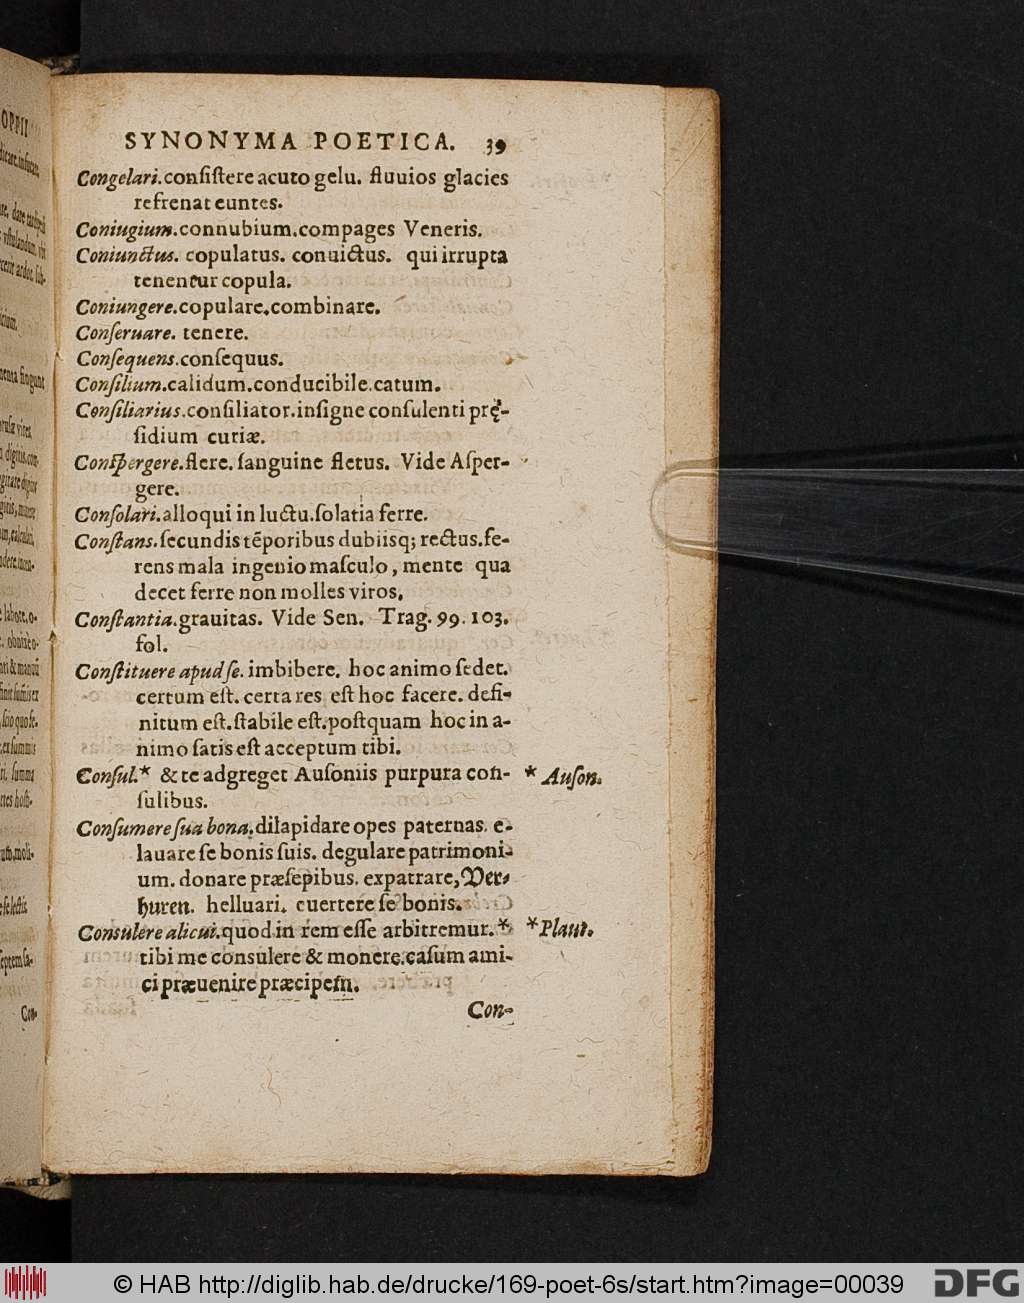 SYNONYMA POETICA. 39
Congelari. conſiſtere acuto gelu. fluuios glacies
refrenat euntes.
Coniugium. connubium. compages Veneris.
Coniunctus. copulatus. conuictus. qui irrupta
tenentur copula.
Coniungere. copulare. combinare.
Conſeruare. tenere.
Conſequens. conſequus.
Conſilium. calidum. conducibile. catum.
Conſiliarius. conſiliator. inſigne conſulenti prę-
ſidium curiæ.
Conſpergere. flere. ſanguine fletus. Vide Aſper-
gere.
Conſolari. alloqui in luctu. ſolatia ferre.
Conſtans. ſecundis tēporibus dubiisq; rectus. fe-
rens mala ingenio maſculo, mente qua
decet ferre non molles viros.
Conſtantia. grauitas. Vide Sen. Trag. 99. 103.
fol.
Conſtituere apud ſe. imbibere. hoc animo ſedet.
certum eſt. certa res eſt hoc facere. defi-
nitum eſt. ſtabile eſt. poſtquam hoc in a-
nimo ſatis eſt acceptum tibi.
Conſul.* & te adgreget Auſoniis purpura con- * Auſon.
ſulibus.
Conſumere ſua bona. dilapidare opes paternas. e-
lauare ſe bonis ſuis. degulare patrimoni-
um. donare præſepibus. expatrare, Ver-
huren. helluari. euertere ſe bonis.
Consulere alicui. quod in rem eſſe arbitremur. * * Plaut.
tibi me consulere & monere. caſum ami-
ci præuenire præcipem.
Con-
© HAB http://diglib.hab.de/drucke/169-poet-6s/start.htm?image=00039
DFG